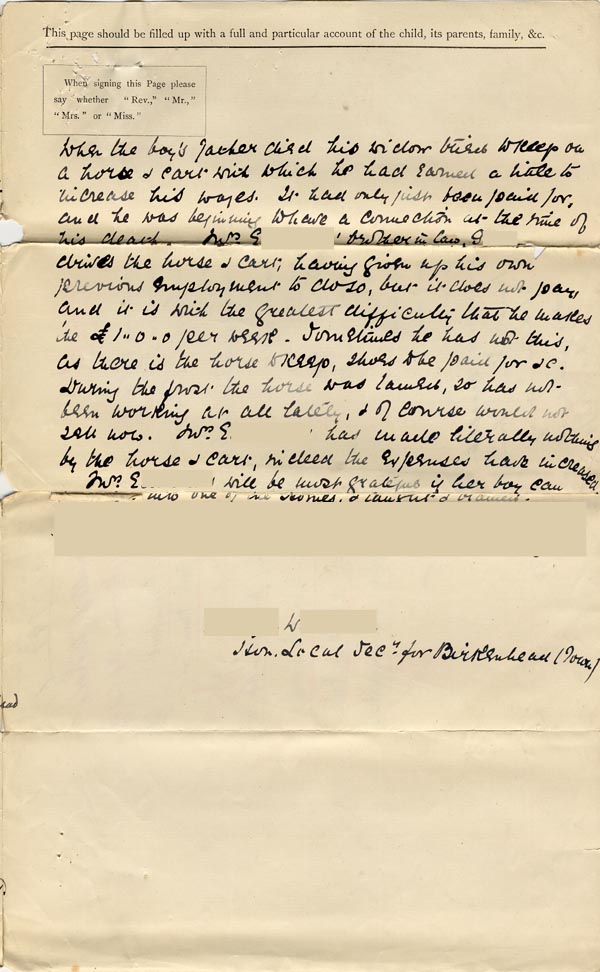 This page should be filled up with a full and particular account of the child, its parents, family, &c.
When signing this Page please
say whether "Rev.," "Mr.,"
"Mrs." or "Miss."
When the boy's father died his widow tried to keep on
a horse & cart with which he had earned a little to
increase his wages. It had only just been paid for,
and he was beginning to have a connection at the time of
his death. Mrs. E brother in law, E
drives the horse & cart, having given up his own
previous employment to do so, but it does not pay,
and it is with the greatest difficulty that he makes
the £1-0-0 per week. Sometimes he has not this,
as there is the horse to keep, shoes to be paid for &c.
During the frost the horse was lamed, so has not
been working at all lately, & of course would not
sell now. Mrs. E. has made literally nothing
by the horse & cart, indeed the expenses have increased.
Mrs. E. will be most grateful if her boy can
into one of the Homes, & taught & trained.
W
Hon. Local Secy. for Birkenhead (Town)